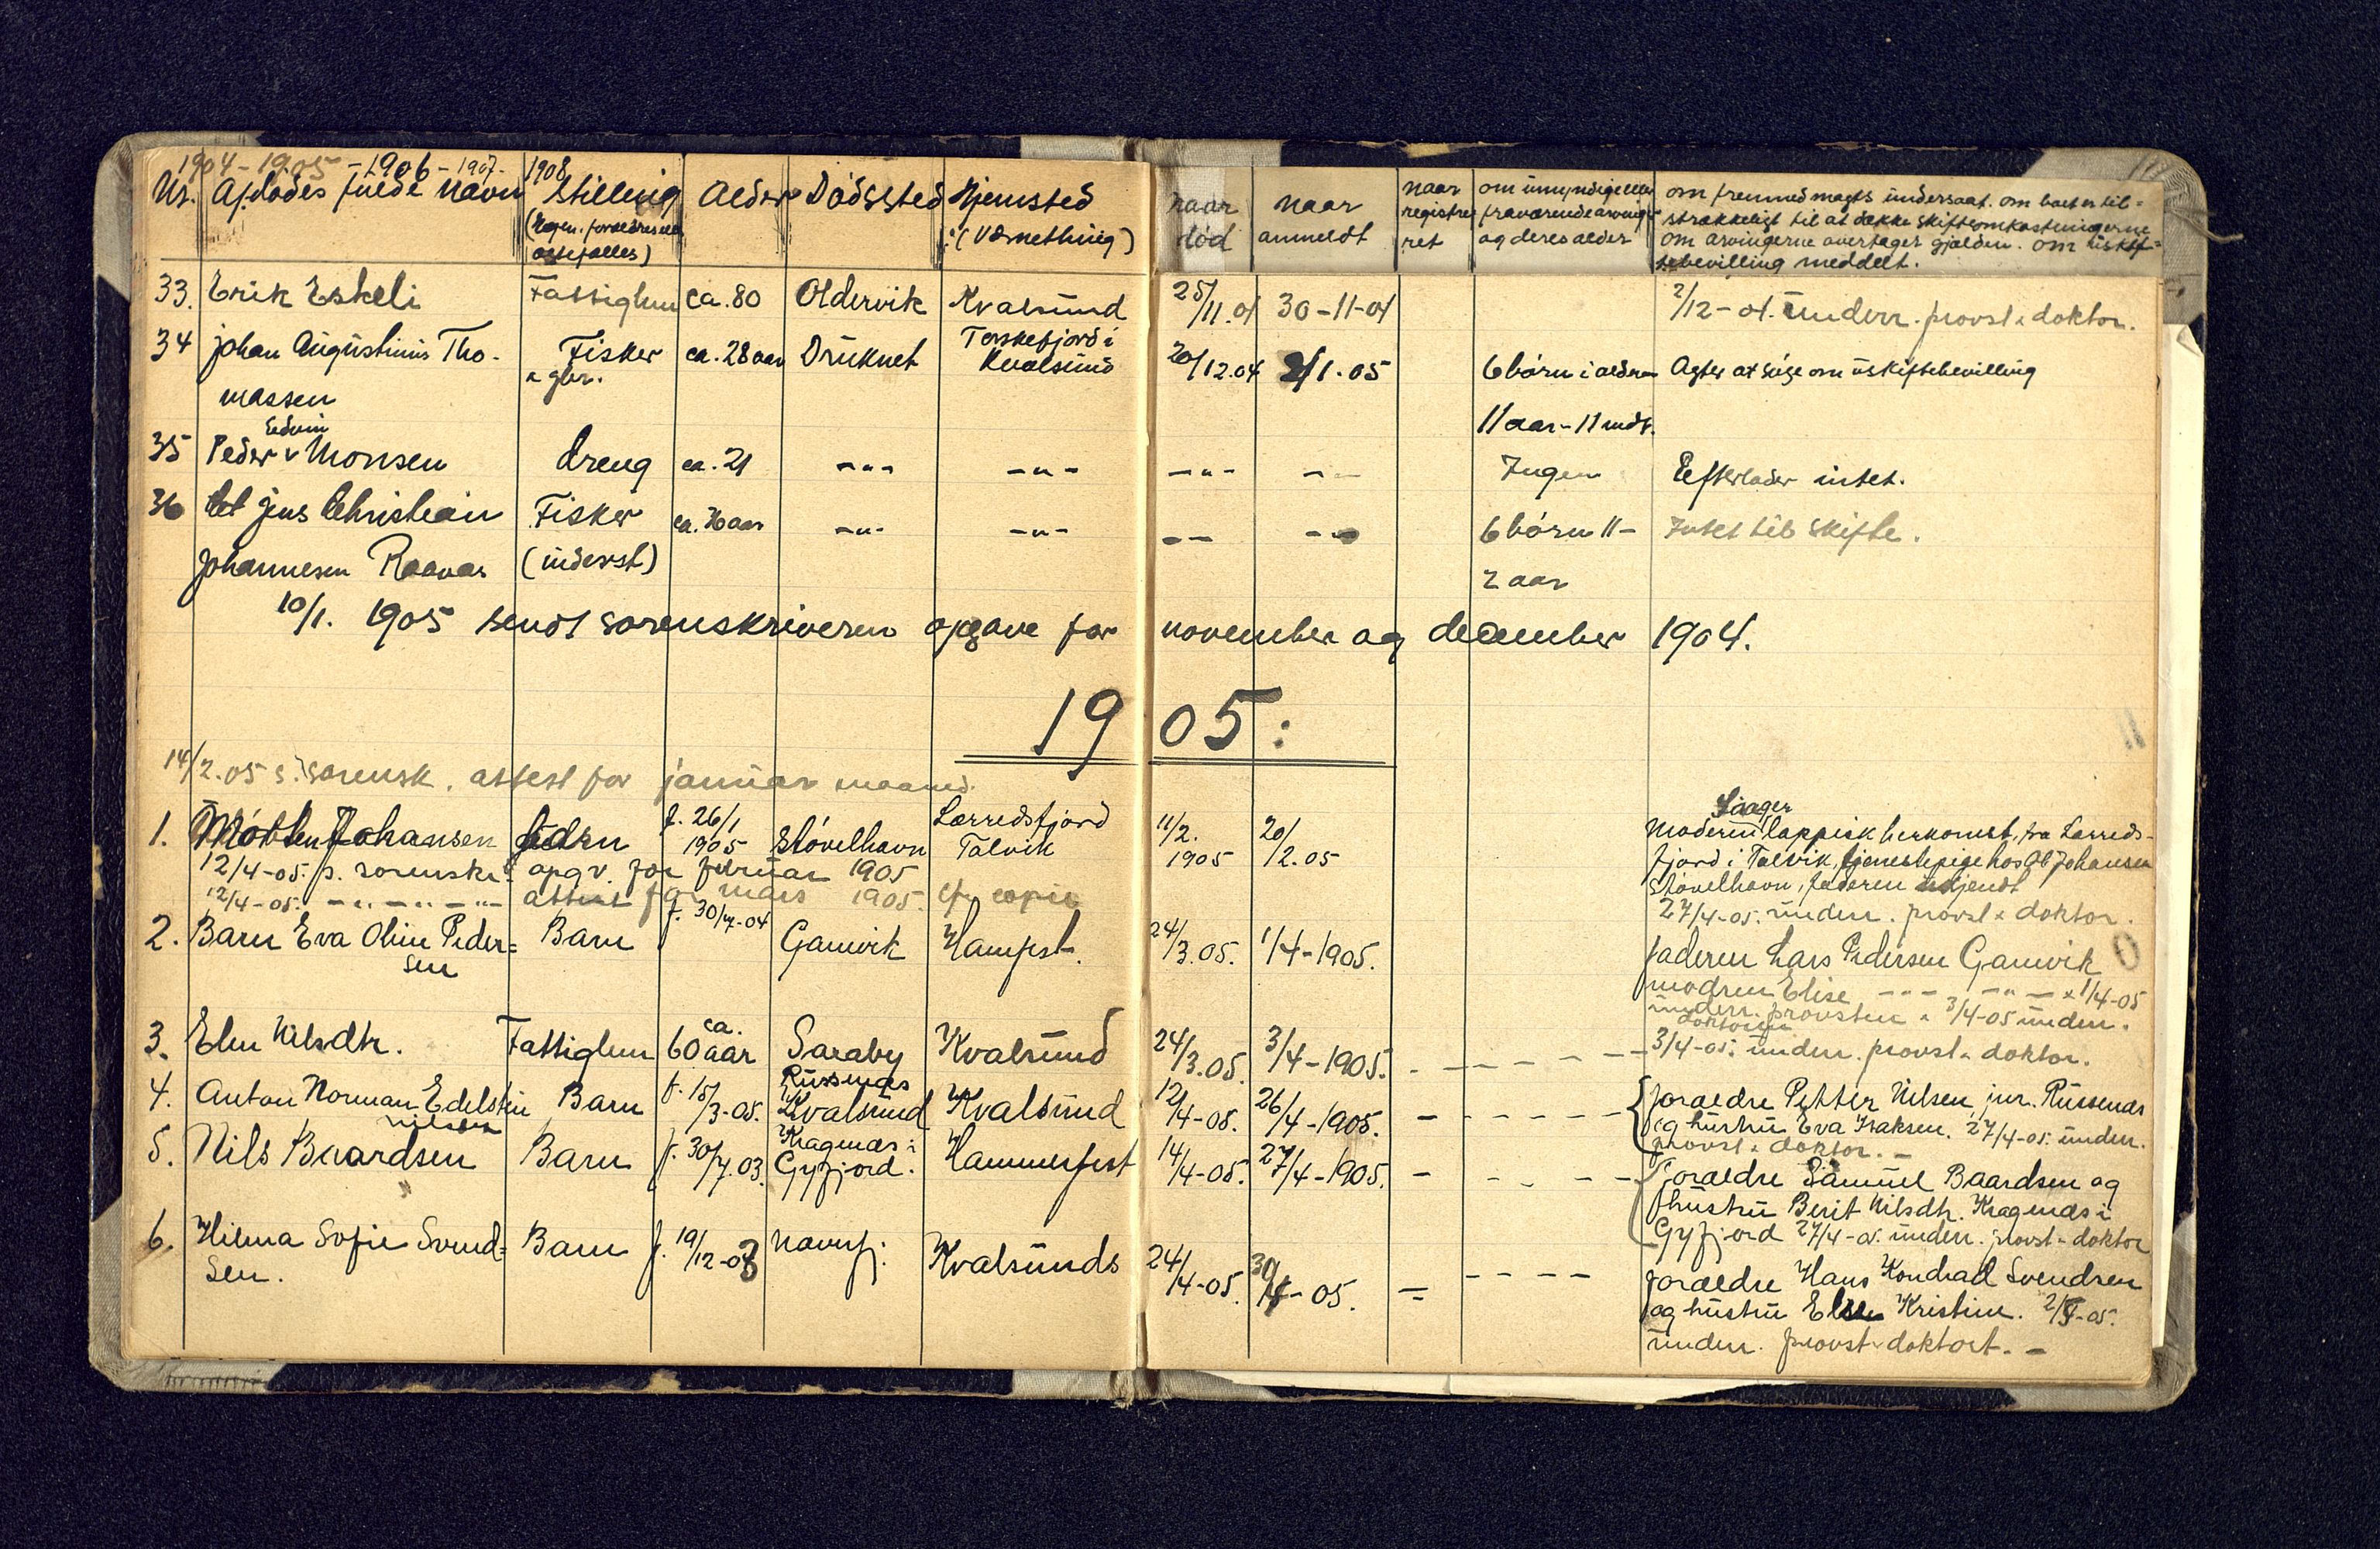 1904-1905-1906-1907-1908
Nr. Afdødes fulde navn Stilling Alder Dødssted Hjemsted naar død naar anmeldt naar registreret om umyndige eller fraværende arvinger og deres alder om fremmed magts undersaat. om boet er til=
(Egen. forældres eller : (Værnething) strækkeligt til at dække skifteomkostningerne
om arvingerne overtager gjælden. om uskif=
tebevilling meddelt.
33. Erik Eskeli Fattiglem ca. 80 Oldervik Kvalsund 25/11.04 30-11-04 2/12-04. underr. provst & doktor.
34 Johan Augustinus Tho- Fisker ca. 28 aar Druknet Torskefjord i 20/12.04 2/1.05 6 børn i alderen Agter at søge om uskiftebevilling
massen & gbr. Kvalsund 11 aar-11 mdr.
Edvin
35 Peder v Monsen dreng ca. 21 -"- -"- -"- - - Ingen Eefterlader intet.
36 Jens Christian Fisker -"- -"- -- -- 6 børn 11- Intet til skifte.
Johannesen Raavas (inderst) 2 aar
10/1. 1905 sendt sorenskriveren opgave for november og december 1904.
1905:
14/2.05 s. sorensk. attest for januar maaned.
1. Johansen f. 26/1 1905 Støvelhavn Lerredsfjord Talvik 11/2. 1905 20/2.05 Moderen lappisk herkomst, fra Lerreds-
fjord i Talvik, tjenestepige hos Ol Johansen
Støvelhavn, faderen ukjendt
27/4-05. underr. provst & doktor.
12/4-05. s. sorenskr. opgv. for februar 1905
12/4-05. -"-"-"- attest for mars 1905. cfr. copie
2. Barn Eva Oline Peder= Barn f. 30/7-04 Gamvik Hamfest. 24/3.05. 1/4-1905. faderen Lars Pedersen Gamvik
sen modren Elise -"- -"- & 1/4-05
underr. provsten & 3/4-05 underr.
doktoren
3. Elen Nilsdtr. Fattiglem ca. 60 aar Saraby Kvalsund 24/3.05. 3/4-1905. - - - - - 3/4-05. underr. provst & doktor.
4. Anton Norman Edelstin Barn f. 15/3-05. Russenæs Kvalsund Kvalsund 12/4-05. 26/4-1905. - - - - - - forældre Petter Nilsen jur. Russenæs
Nilsen og hustru Eva Isaksen. 27/4-05. underr.
provst & doktor. -
5. Nils Baardsen Barn f. 30/7.03. Kragenæs i Gyfjord. Hammerfest 14/4-05. 27/4-1905. - - - - - Forældre Samuel Baardsen og
hustru Berit Nilsdtr. Kragenæs i
Gyfjord 27/4-05. underr. provst & doktor
6. Hilma Sofie Svend= Barn f. 19/12-03 Navnfj. Kvalsunds 24/4-05. 30/4-05. = - - - - forældre Hans Kondrad Svendsen
sen. og hustru Ellen Kristine. 2/5-05.
underr. provst & doktort. -